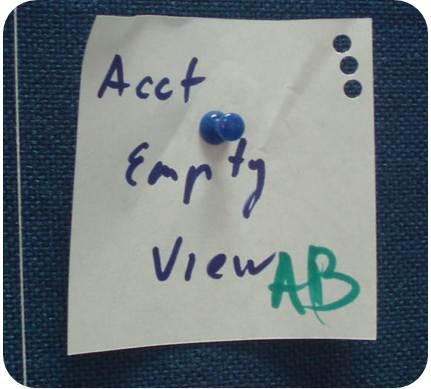 Acct
Empty
View AB